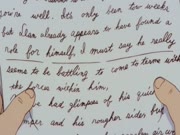 you're well. It's only been two weeks
but Sean already appears to have found a
role for himself. I must say he really
seems to be battling to come to terms with
the forces within him,
have had glimpses of his quick
and his rougher sides but